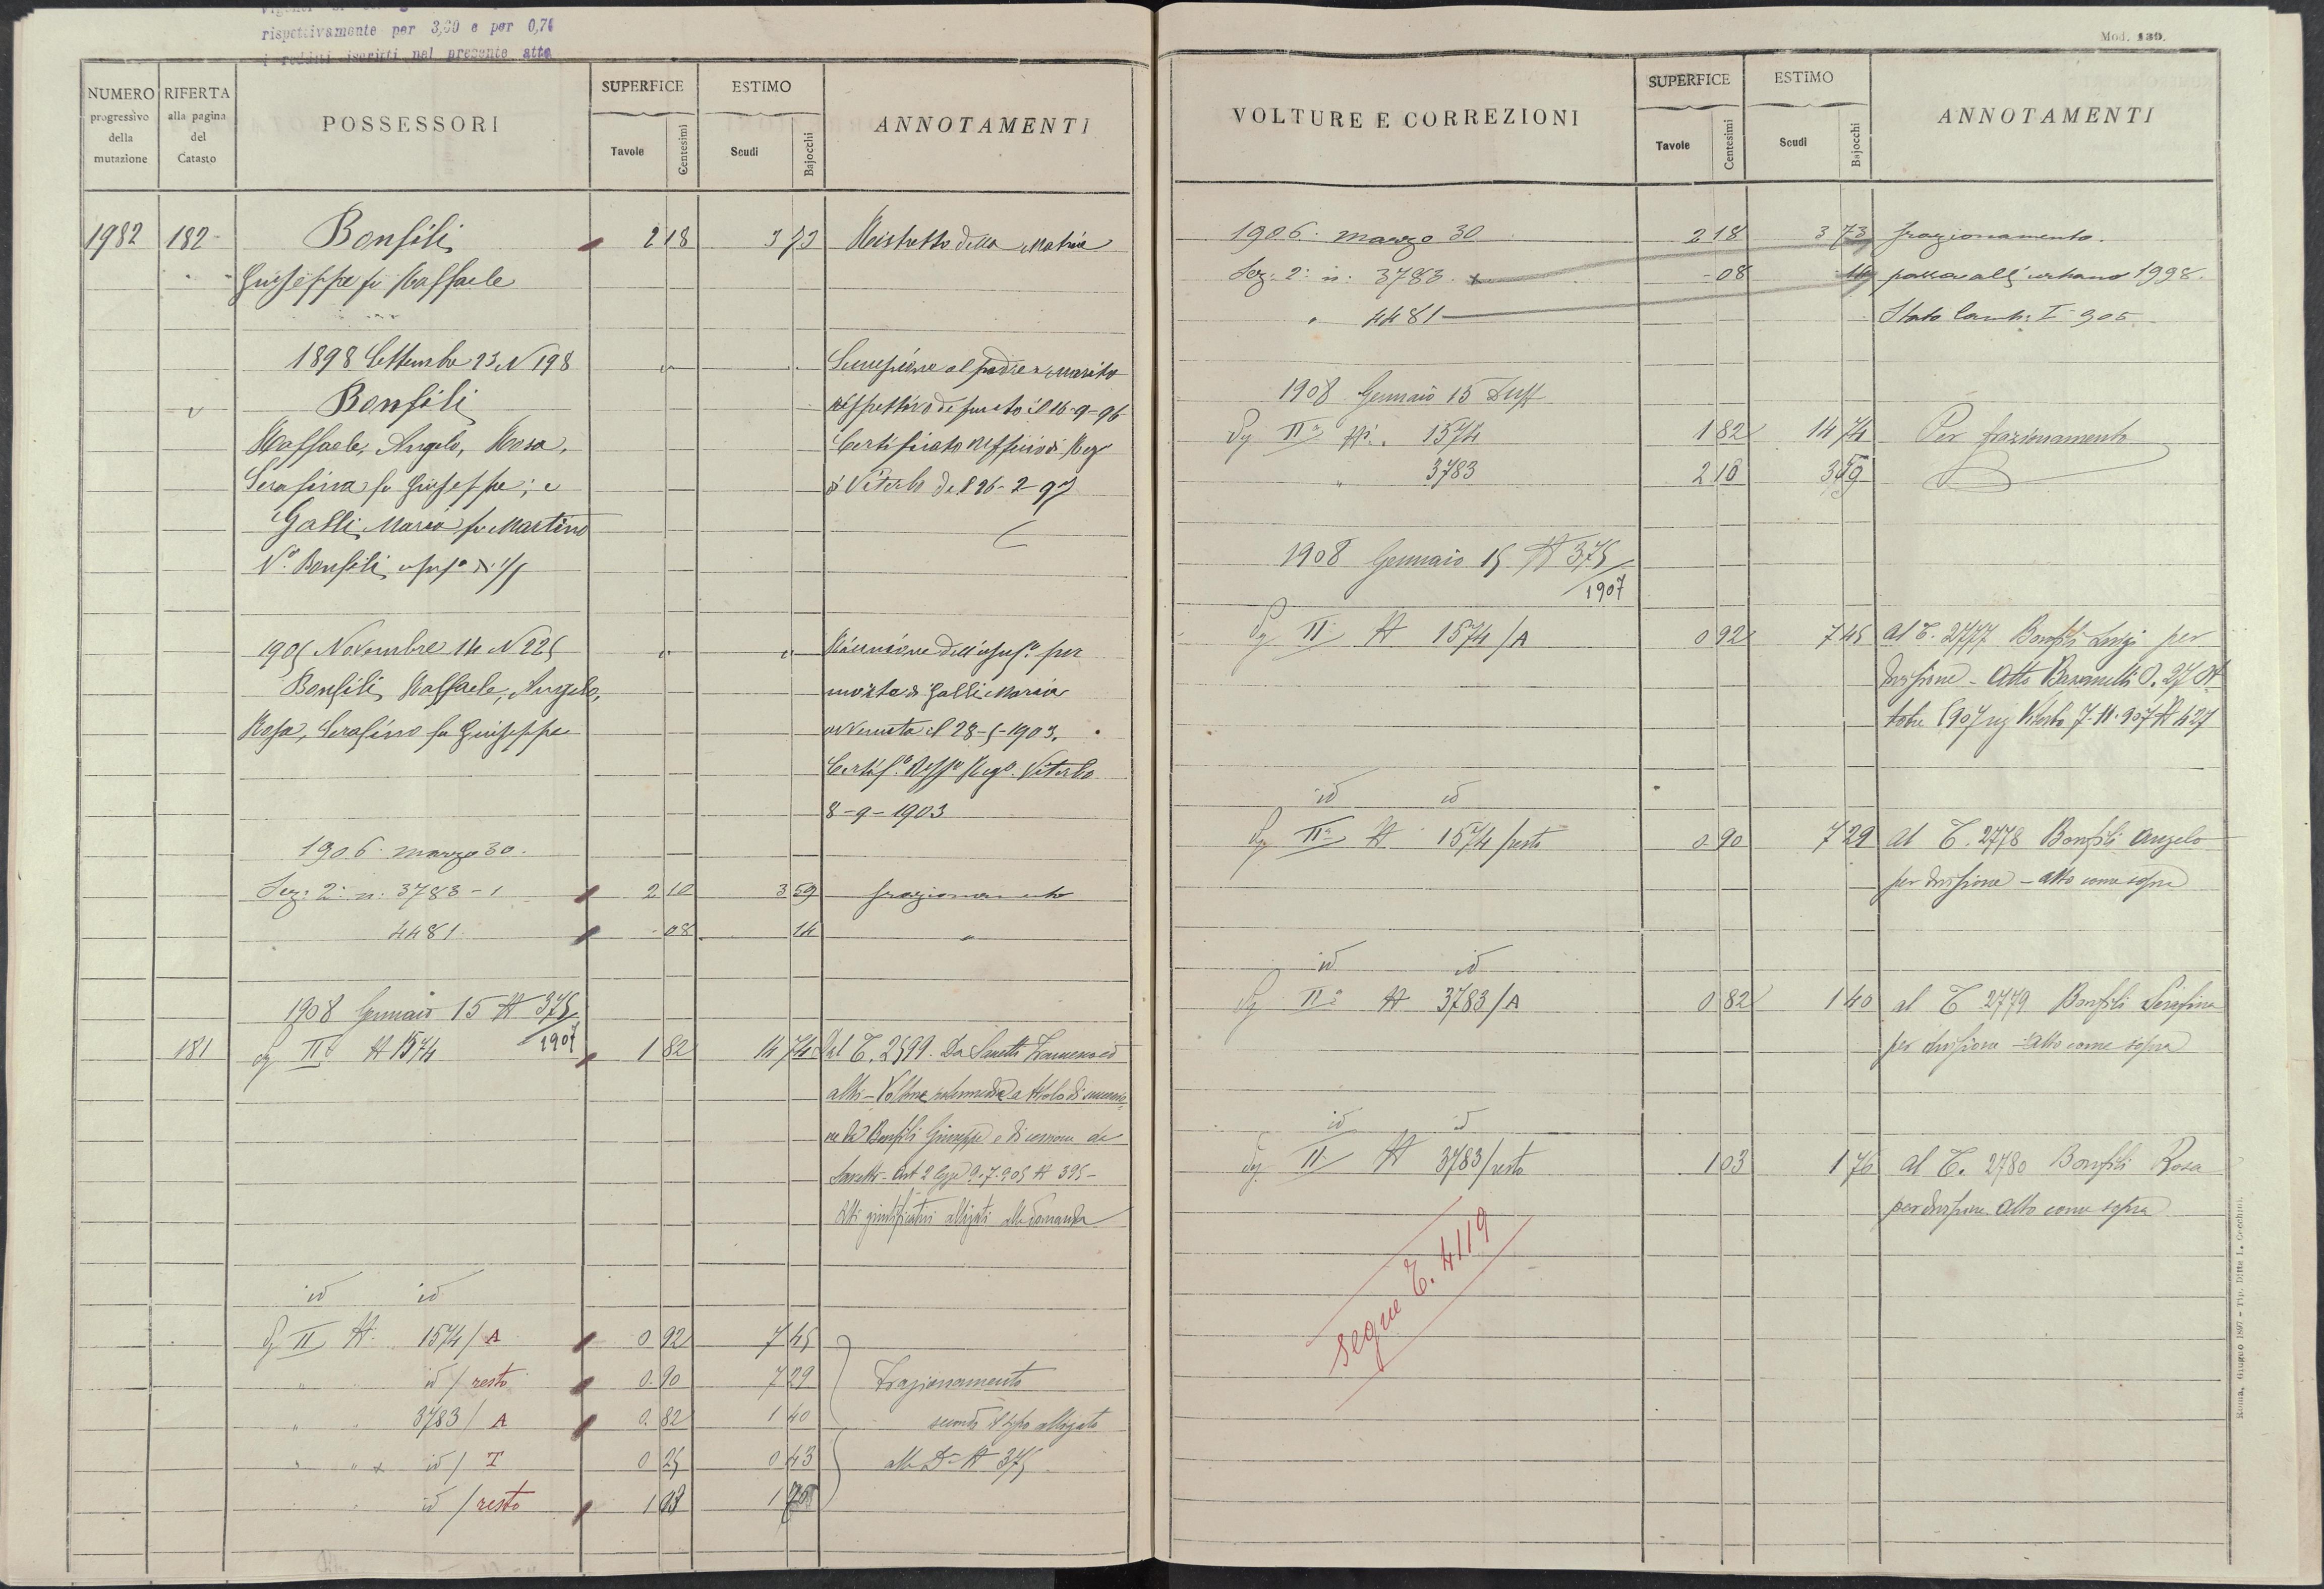 rispettivamente per 3,60 e per 0,76
i redditi iscritti nel presente atto
NUMERO progressivo della mutazione
RIFERTA alla pagina del Catasto
POSSESSORI
SUPERFICE
Tavole Centesimi
ESTIMO
Scudi Bajocchi
ANNOTAMENTI
1982 182 Bonfili 2 18 3 73 Ristretto della Matrice
Giuseppe fu Raffaele
1898 Settembre 23 N 198 Successione al padre e marito
Bonfili rispettivo defunto il 16-9-96
Raffaele, Angelo, Rosa, Certificato Uffficio di Reg
Serafina fu Giuseppe; e di Viterbo del 26-2-97
Galli Maria fu Martino
Va. Bonfili usufa di 1/5
1905 Novembre 14 N 225 Riunione dell'usufo per
Bonfili Raffaele, Angelo, morte di Galli Maria
Rosa, Serafina fu Giuseppe avvenuta il 28-5-1903.
Certifo Uffo Rego Viterbo
8-9-1903
1906 marzo 30.
Sez: 2a n: 3783-1 2 10 3 59 frazionamento
4481 08 14 "
1908 Gennaio 15 N 375/1907
181 Sez IIa N 1574 1 82 14 74 Dal T. 2599. Da Saretti Francesco ed
altri - Voltura intermedia a titolo di successio
ne da Bonfili Giuseppe e di cessione da
Saretti - Art 2 legge 9.7.905 N 395 -
Atti giustificativi allegati alla domanda
id id
Sez II N. 1574/A 0 92 7 45
" id/resto 0.90 7 29 Frazionamento
" 3783/A 0.82 1 40 secondo il tipo allegato
" " x id/T 0 25 0 43 alla D. N 375
id/resto 1 03 1 76
Mod. 130.
VOLTURE E CORREZIONI
SUPERFICE
Tavole Centesimi
ESTIMO
Scudi Bajocchi
ANNOTAMENTI
1906. marzo 30 2 18 3 73 frazionamento.
Sez: 2a n: 3783. x - 08 14 passa all'urbano 1998.
" 4481 Stato Camb: I 905
1908 Gennaio 15 Suff
Sez IIa N. 1574 1 82 14 74 Per frazionamento
" 3783 2 10 3 59
1908 Gennaio 15 N 375/1907
Sez II N 1574/A 0 92 7 45 Al T. 2777 Bonfili Luigi per
divisione - Atto Basanelli O. 27 Ot
tobre 1907 reg Viterbo 7-11-907 N 427
id id
Sez IIa N 1574/resto 0.90 7 29 Al T. 2778 Bonfili Angelo
per divisione - atto come sopra
id id
Sez IIa N 3783/A 0 82 1 40 al T 2779 Bonfili Serafina
per divisione - Atto come sopra
id id
Sez II N 3783/resto 1 03 1 76 al T. 2780 Bonfili Rosa
per divisione. Atto come sopra
segue T. 4119
Roma, Giugno 1897 - Tip. Ditta L. Cecchini.